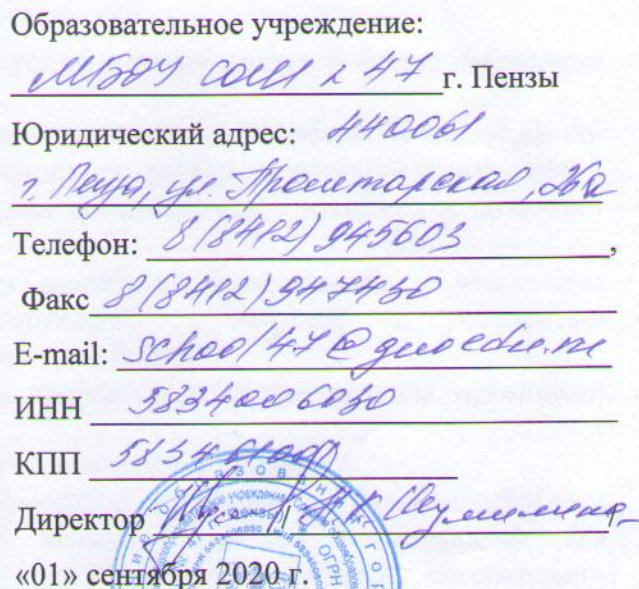 Образовательное учреждение:
МБОУ СОШ № 47 г. Пензы
Юридический адрес: 440061
г. Пенза, ул. Пролетарская, 26а
Телефон: 8(8412)945603,
Факс 8(8412)947430
E-mail: school47@guoedu.ru
ИНН 5834006030
КПП
Директор /
«01» сентября 2020 г.